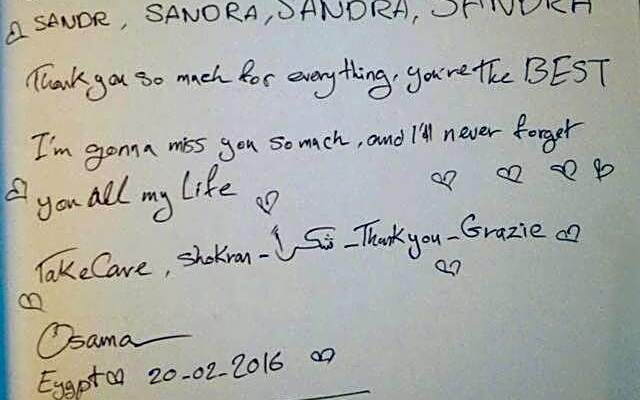 SANDR, SANDRA, SANDRA, SANDRA
Thank you so much for everything, you're the BEST
I'm gonna miss you so much, and I'll never forget
you all my Life
Take Care, Shokran - شكراً - Thank you - Grazie
Osama
Eygpt 20-02-2016